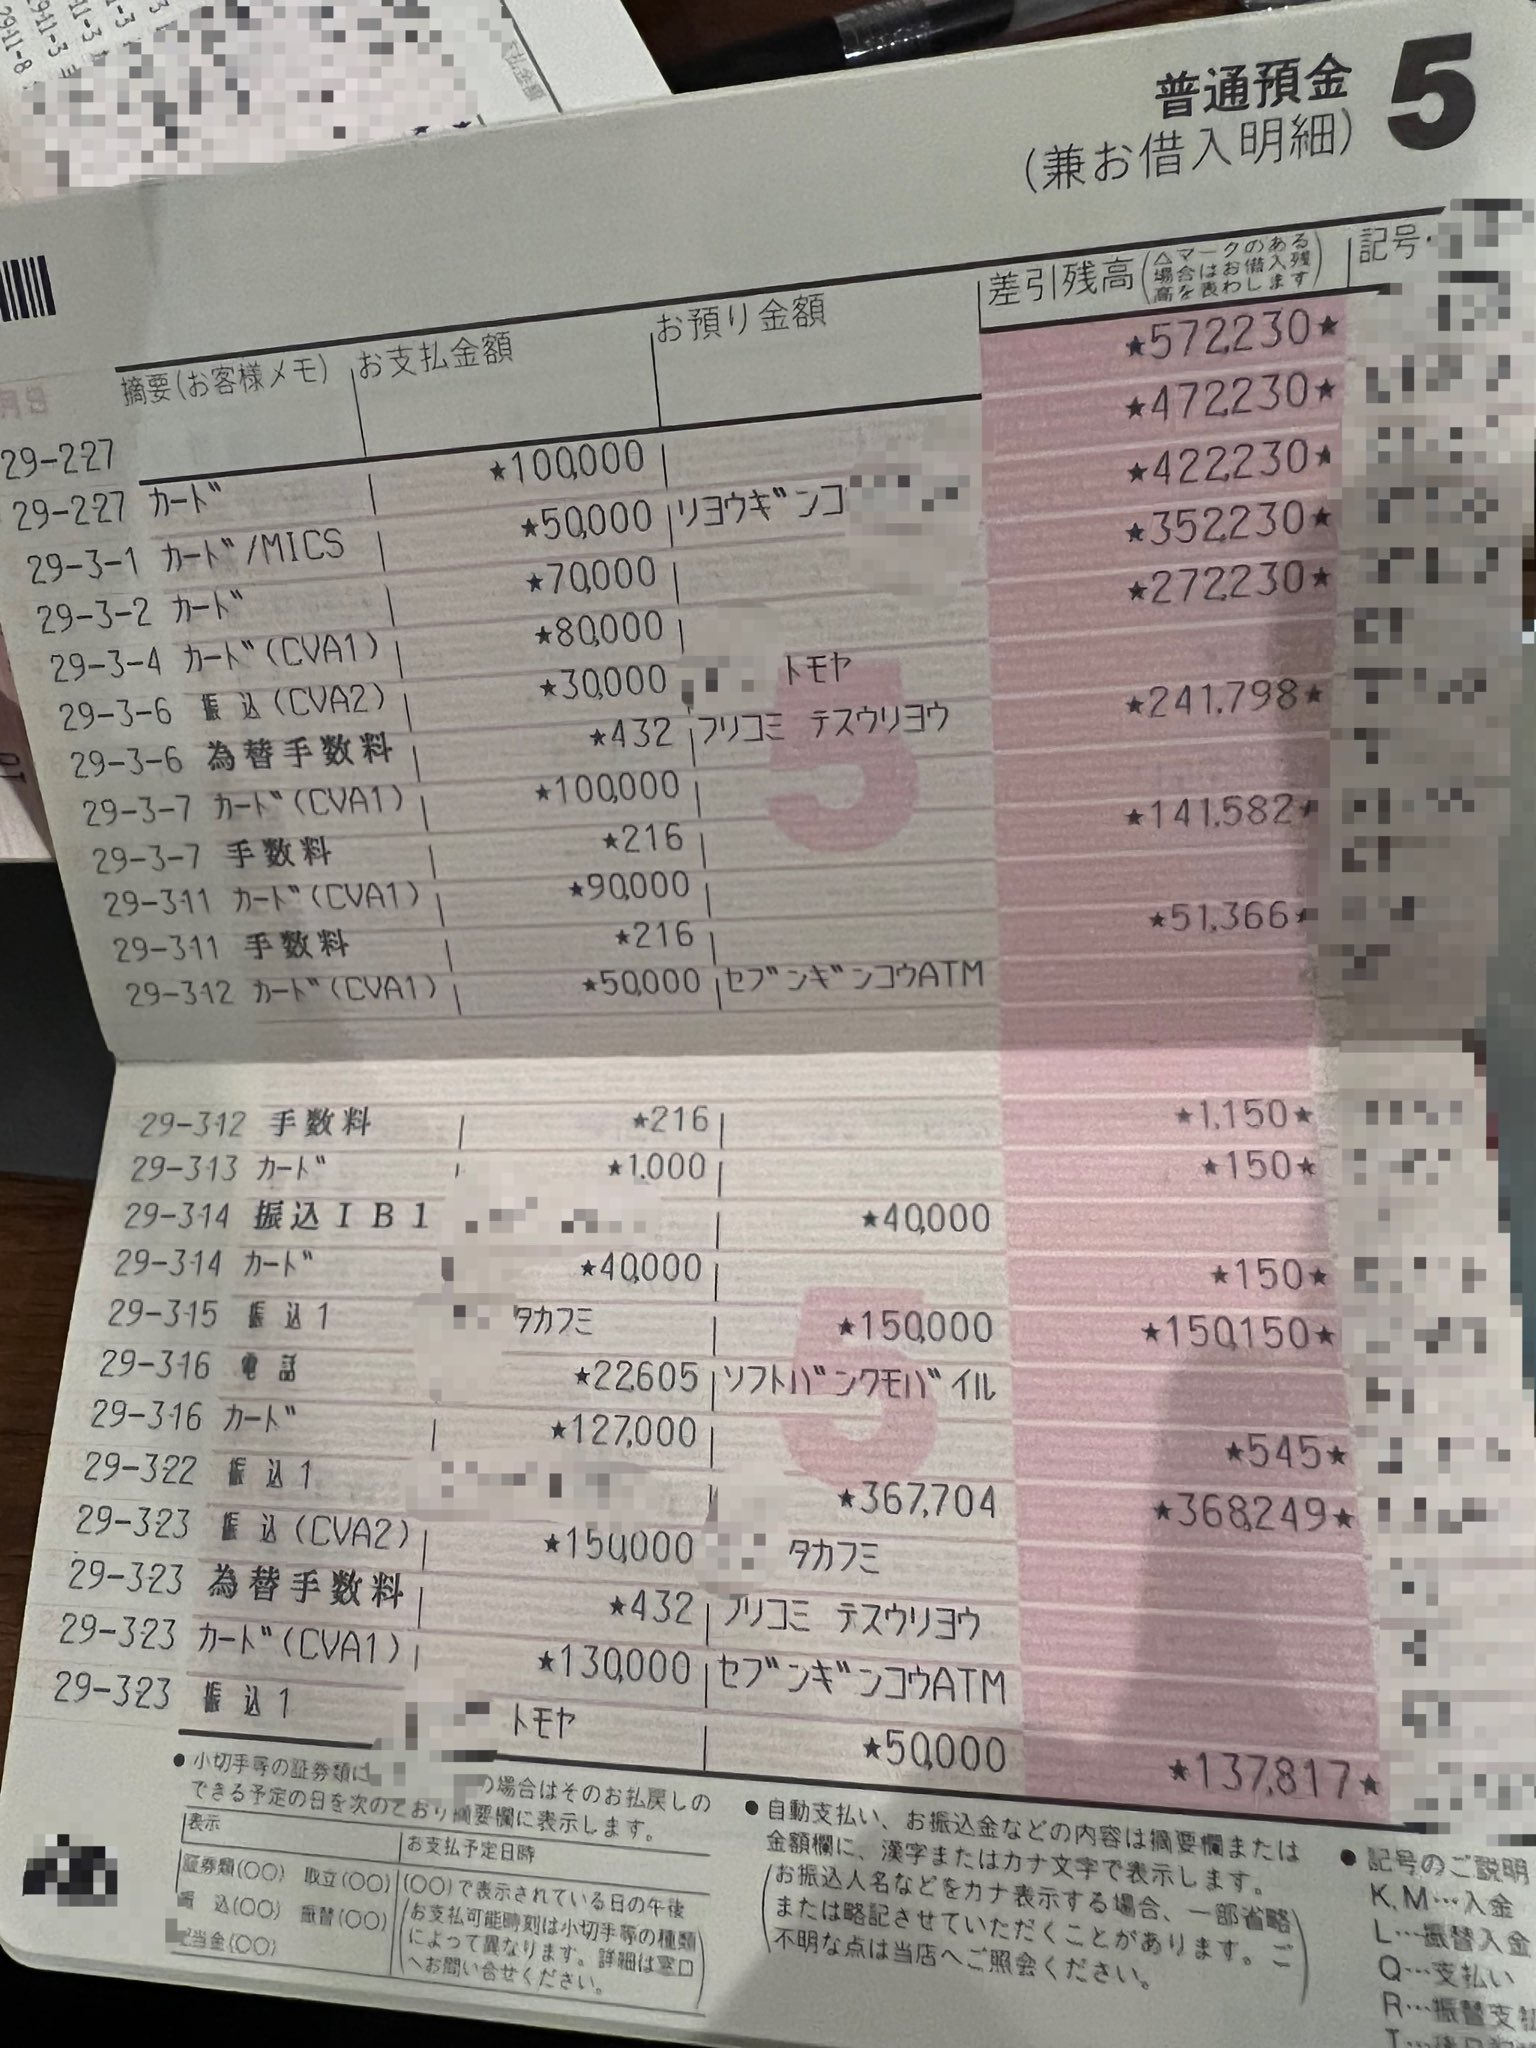 普通預金 5
(兼お借入明細)
摘要(お客様メモ) お支払金額 お預り金額 差引残高(△マークのある場合はお借入残高を表わします) 記号・
29-2-27 ★572,230★
29-2-27 カード ★100,000 ★472,230★
29-3-1 カード/MICS ★50,000 リヨウギンコ ★422,230★
29-3-2 カード ★70,000 ★352,230★
29-3-4 カード(CVA1) ★80,000 ★272,230★
29-3-6 振込(CVA2) ★30,000 トモヤ
29-3-6 為替手数料 ★432 フリコミ テスウリヨウ ★241,798★
29-3-7 カード(CVA1) ★100,000
29-3-7 手数料 ★216 ★141,582★
29-3-11 カード(CVA1) ★90,000
29-3-11 手数料 ★216 ★51,366★
29-3-12 カード(CVA1) ★50,000 セブンギンコウATM
29-3-12 手数料 ★216 ★1,150★
29-3-13 カード ★1,000 ★150★
29-3-14 振込IB1 ★40,000
29-3-14 カード ★40,000 ★150★
29-3-15 振込1 タカフミ ★150,000 ★150,150★
29-3-16 電話 ★22,605 ソフトバンクモバイル
29-3-16 カード ★127,000 ★545★
29-3-22 振込1 ★367,704 ★368,249★
29-3-23 振込(CVA2) ★150,000 タカフミ
29-3-23 為替手数料 ★432 フリコミ テスウリヨウ
29-3-23 カード(CVA1) ★130,000 セブンギンコウATM
29-3-23 振込1 トモヤ ★50,000 ★137,817★
●小切手等の証券類に の場合はそのお払戻しの
できる予定の日を次のとおり摘要欄に表示します。
表示 お支払予定日時
証券類(○○) 取立(○○) (○○)で表示されている日の午後
振 込(○○) 振替(○○) (お支払可能時刻は小切手等の種類
配当金(○○) によって異なります。詳細は窓口
へお問い合せください。)
●自動支払い、お振込金などの内容は摘要欄または
金額欄に、漢字またはカナ文字で表示します。
(お振込人名などをカナ表示する場合、一部省略
または略記させていただくことがあります。ご
不明な点は当店へご照会ください。)
●記号のご説明
K,M…入金
L…振替入金
Q…支払い
R…振替支払